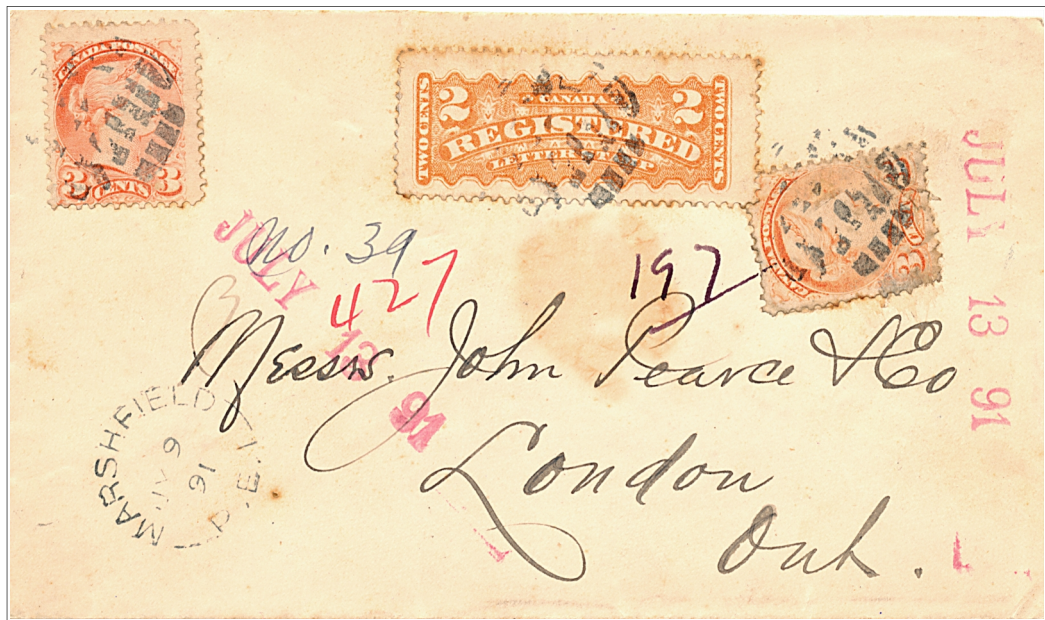 CANADA POSTAGE
3 CENTS 3
2 CANADA 2
TWO CENTS REGISTERED TWO CENTS
LETTER STAMP
3
JULY 13 91
JULY 13 91
No. 39
427
192
Messrs. John Pearce & Co
London
Ont.
MARSHFIELD P.E.I.
JY 9
91